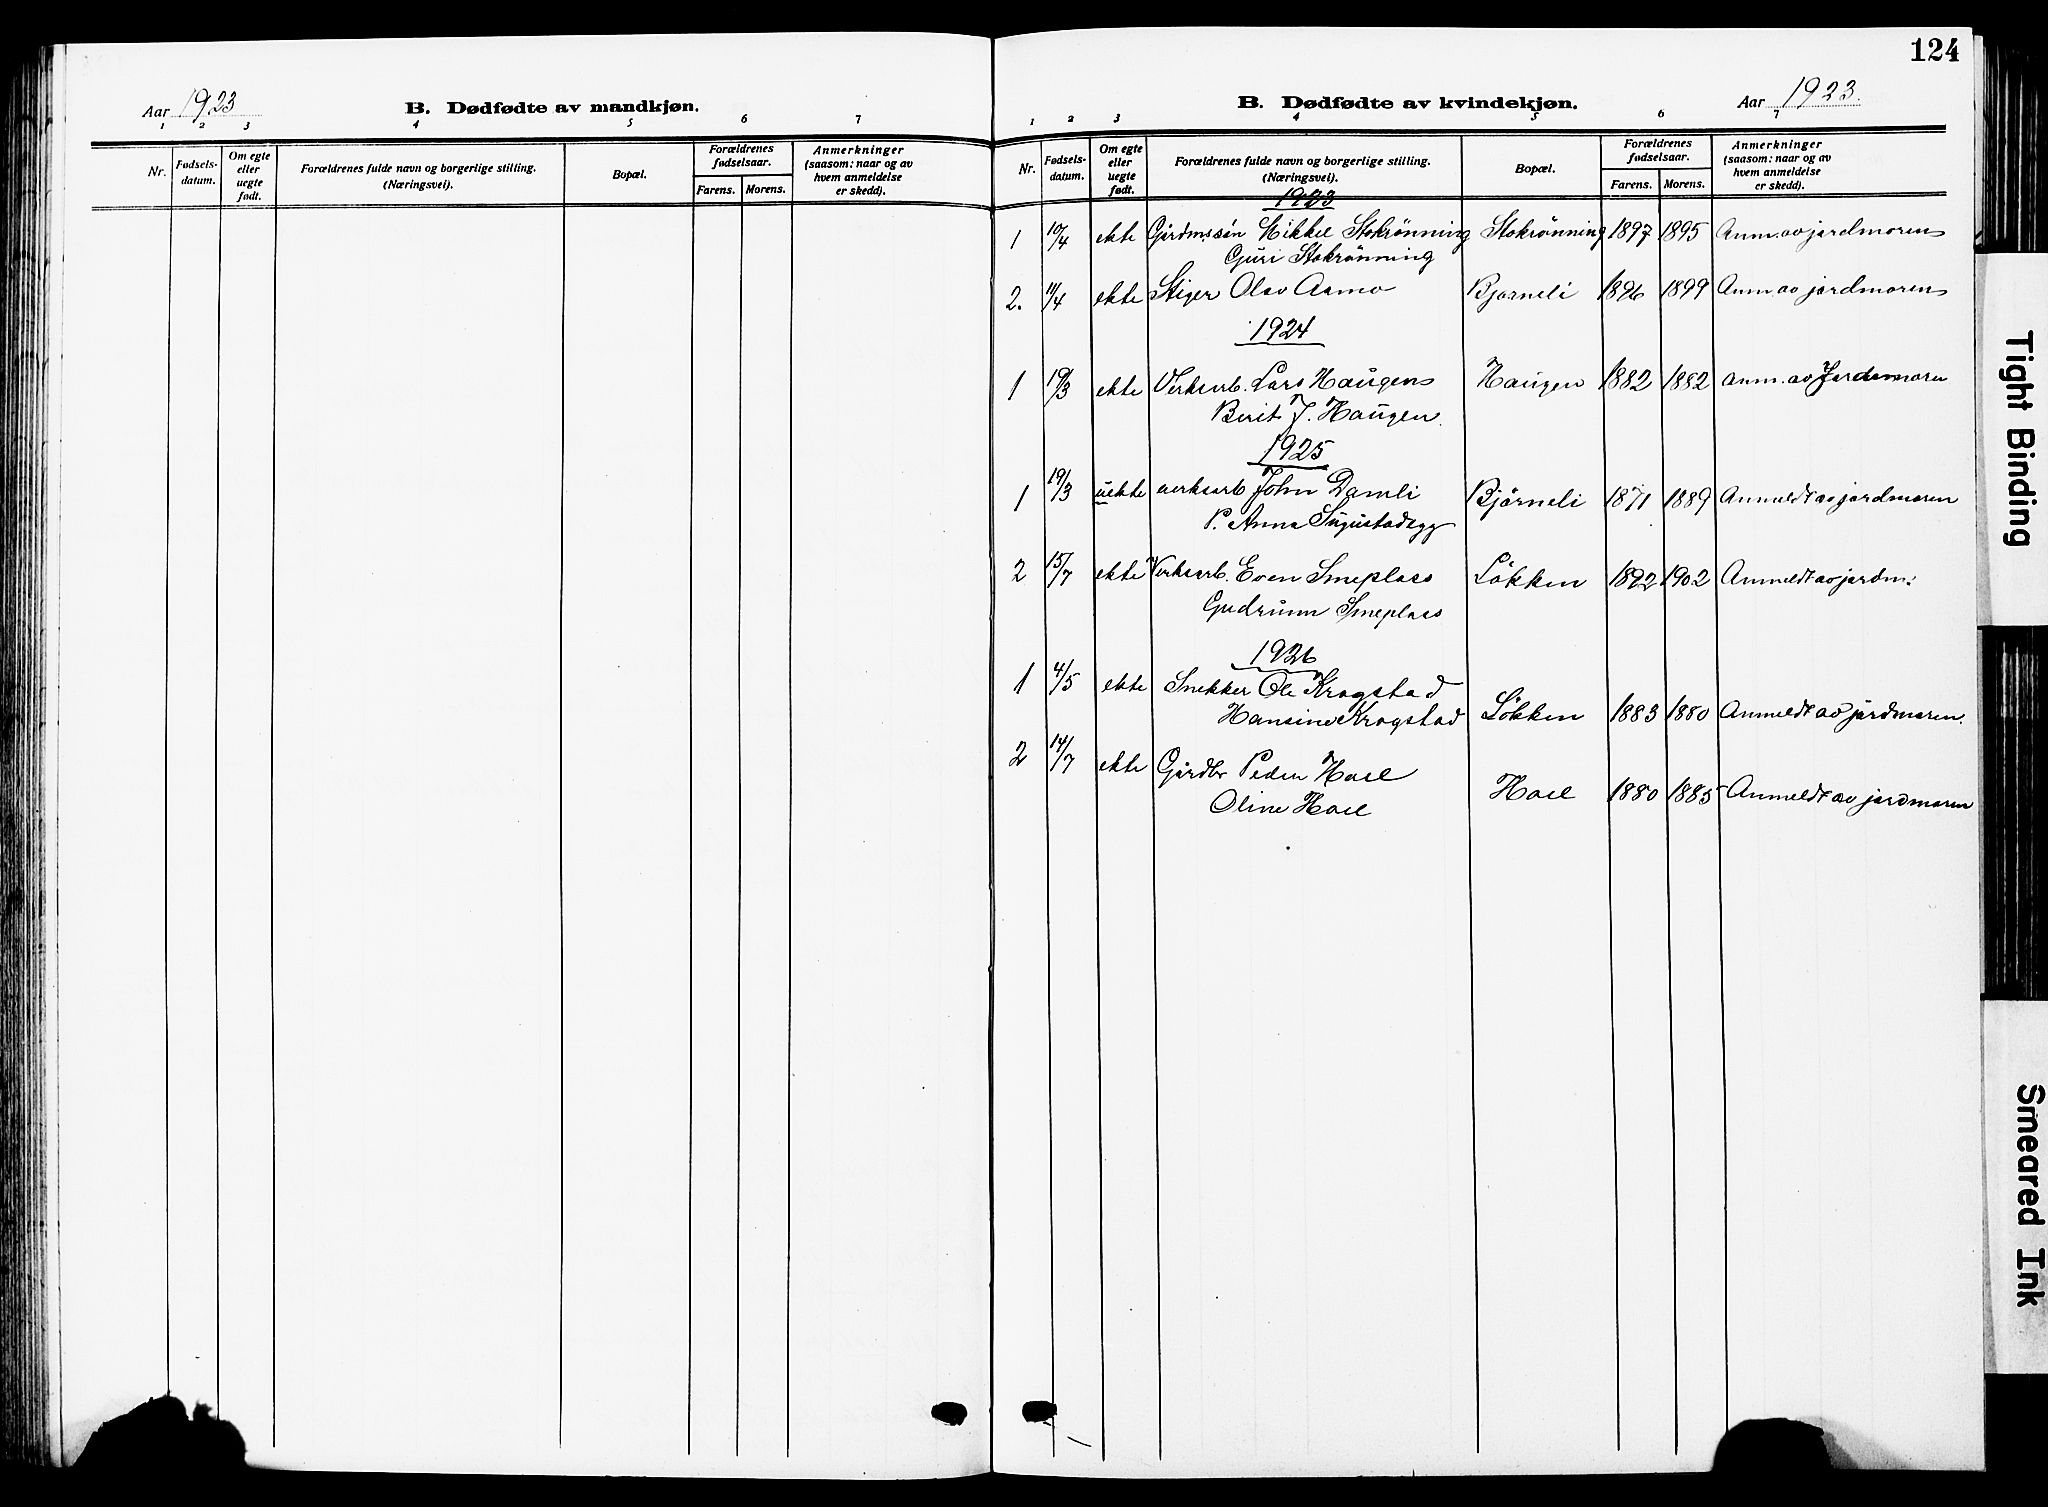 124
Aar 1923
B. Dødfødte av mandkjøn.
1 2 3 4 5 6 7
Nr.
Fødsels-
datum.
Om egte
eller
uegte
født.
Forældrenes fulde navn og borgerlige stilling.
(Næringsvei).
Bopæl.
Forældrenes
fødselsaar.
Farens. Morens.
Anmerkninger
(saasom: naar og av
hvem anmeldelse
er skedd).
B. Dødfødte av kvindekjøn.
Aar 1923.
1 2 3 4 5 6 7
Nr.
Fødsels-
datum.
Om egte
eller
uegte
født.
Forældrenes fulde navn og borgerlige stilling.
(Næringsvei).
Bopæl.
Forældrenes
fødselsaar.
Farens. Morens.
Anmerkninger
(saasom: naar og av
hvem anmeldelse
er skedd).
1923
1 10/4 ekte Gårdmssön Mikkel Stokrönning Stokrönning 1897 1895 Anm. av jordmoren
Guri Stokrönning
2. 11/4 ekte Stiger Olav Aamo Bjorneli 1896 1899 Anm av jordmoren
1924
1 19/3 ekte Verksarb. Lars Haugen Haugen 1882 1882 anm. av Jordemoren
Berit J. Haugen.
1925
1 19/3 uekte verksarb John Damli Björneli 1871 1889 Anmeldt av jordmoren
P. Anna
2 15/7 ekte Verksarb. Even Smeplass Lökken 1892 1902 Anmeldt av jordm:
Gudrunn Smeplass
1926
1 4/5 ekte Snekker Ole Krogstad
Hansine Krogstad Lökken 1883 1880 Anmeldt av jordmoren.
2 14/7 ekte Gårdbr Peder Hoel
Oline Hoel Hoel 1880 1885 Anmeldt av jordmoren
Tight Binding
Smeared Ink